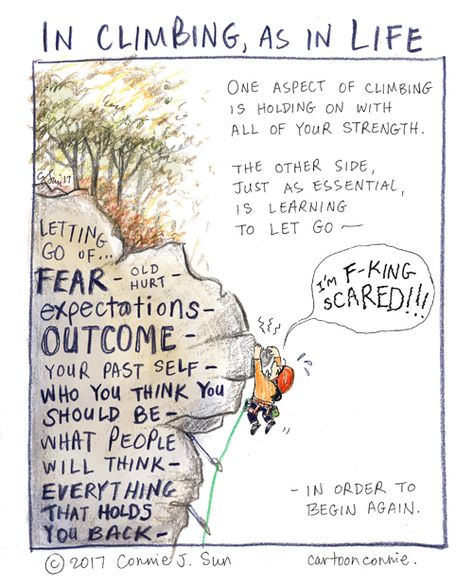 IN CLIMBING, AS IN LIFE
ONE ASPECT OF CLIMBING
IS HOLDING ON WITH
ALL OF YOUR STRENGTH.
THE OTHER SIDE,
JUST AS ESSENTIAL,
IS LEARNING
TO LET GO —
C. Sun 17
LETTING
GO OF...
FEAR - OLD HURT -
expectations-
OUTCOME -
YOUR PAST SELF -
WHO YOU THINK YOU
SHOULD BE -
WHAT PEOPLE
WILL THINK -
EVERYTHING
THAT HOLDS
YOU BACK -
I'M F-KING
SCARED!!!
- IN ORDER TO
BEGIN AGAIN.
© 2017 Connie J. Sun
cartoonconnie.